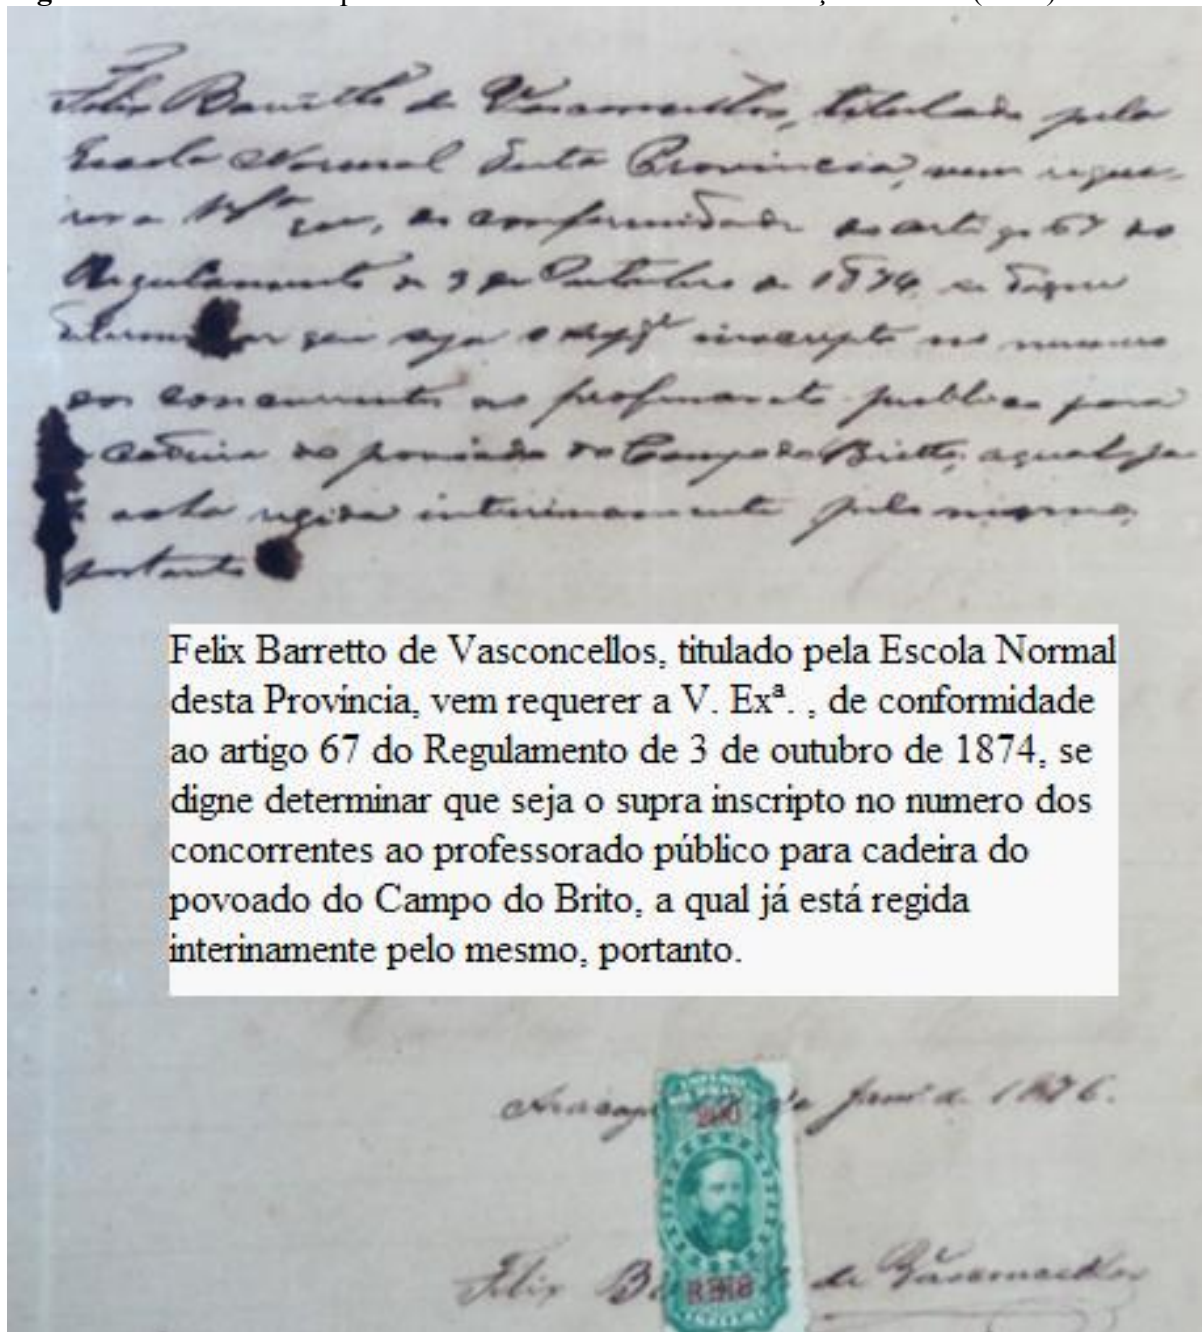 Felix Barretto de Vasconcellos, titulado pela
Escola Normal desta Provincia, vem reque-
rer a V. Exª que, de conformidade ao artigo 67 do
Regulamento de 3 de Outubro de 1874, se digne
determinar que seja o inscripto no numero
dos concurrentes ao professorato publico para
a cadeira do povoado do Campo do Britto, a qual ja
está regida interinamente pelo mesmo,
portanto
Felix Barretto de Vasconcellos, titulado pela Escola Normal
desta Província, vem requerer a V. Exª. , de conformidade
ao artigo 67 do Regulamento de 3 de outubro de 1874, se
digne determinar que seja o supra inscripto no numero dos
concorrentes ao professorado público para cadeira do
povoado do Campo do Brito, a qual já está regida
interinamente pelo mesmo, portanto.
de 1876.
200
REIS
Felix de Vasconcellos